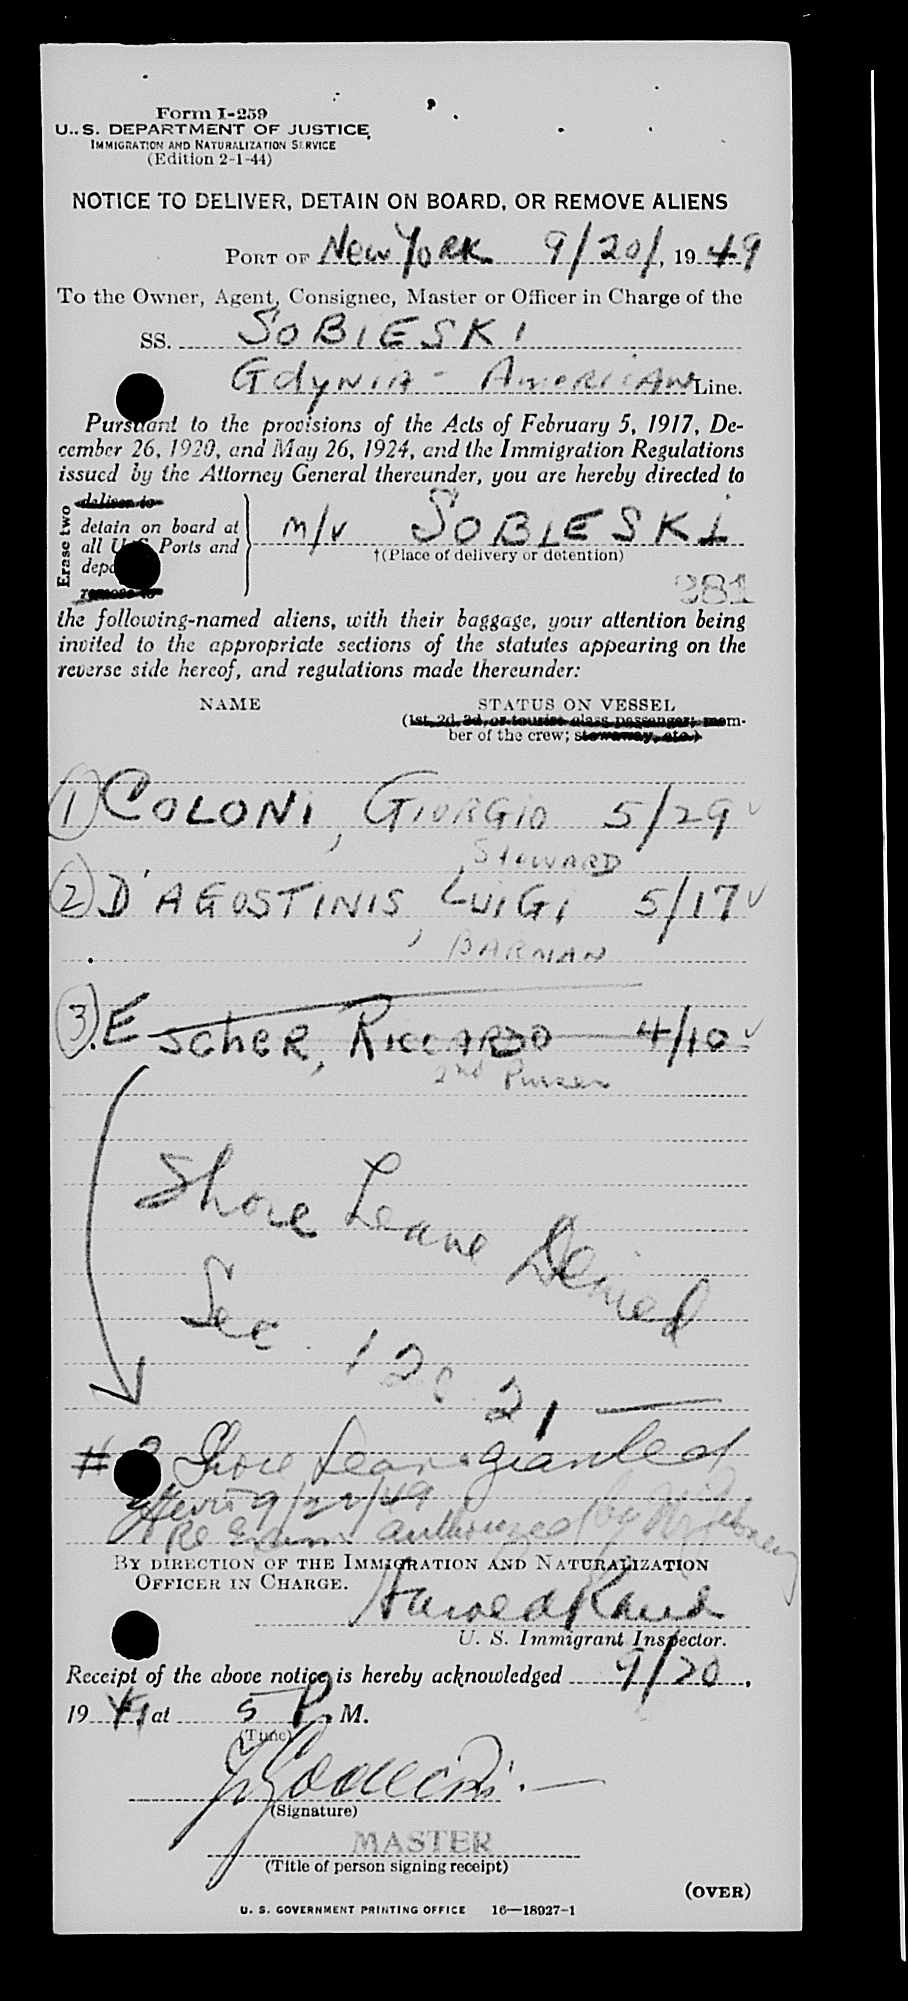 Form I-259
U. S. DEPARTMENT OF JUSTICE
IMMIGRATION AND NATURALIZATION SERVICE
(Edition 2-1-44)
NOTICE TO DELIVER, DETAIN ON BOARD, OR REMOVE ALIENS
PORT OF New York 9/20/, 1949
To the Owner, Agent, Consignee, Master or Officer in Charge of the
SS. SOBIESKI
Gdynia - American Line.
Pursuant to the provisions of the Acts of February 5, 1917, De-
cember 26, 1920, and May 26, 1924, and the Immigration Regulations
issued by the Attorney General thereunder, you are hereby directed to
Erase two
deliver to
detain on board at
all U. S. Ports and
remove to
M/V SOBIESKI
†(Place of delivery or detention)
281
the following-named aliens, with their baggage, your attention being
invited to the appropriate sections of the statutes appearing on the
reverse side hereof, and regulations made thereunder:
NAME STATUS ON VESSEL
(1st, 2d, 3d, or tourist class passenger; mem-
ber of the crew; stowaway, etc.)
1 COLONI, GIORGIO 5/29
STEWARD
2 D'AGOSTINIS, LUIGI 5/17
BARMAN
3. Escher, Riccardo 4/10
2nd Purser
Shore Leave Denied
Sec. 120.21
# 3 Shore Leave granted
9/22/49
Re Exam authorized by
BY DIRECTION OF THE IMMIGRATION AND NATURALIZATION
OFFICER IN CHARGE.
Harold
U. S. Immigrant Inspector.
Receipt of the above notice is hereby acknowledged 9/20,
1949 at 5 P. M.
(Time)
(Signature)
MASTER
(Title of person signing receipt)
(OVER)
U. S. GOVERNMENT PRINTING OFFICE 16—18927-1